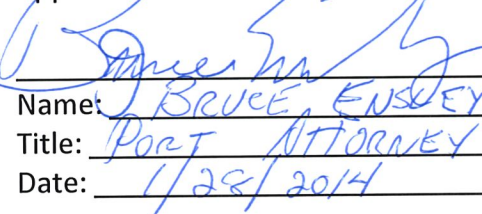 Name: BRUCE ENSLEY
Title: PORT ATTORNEY
Date: 1/28/2014